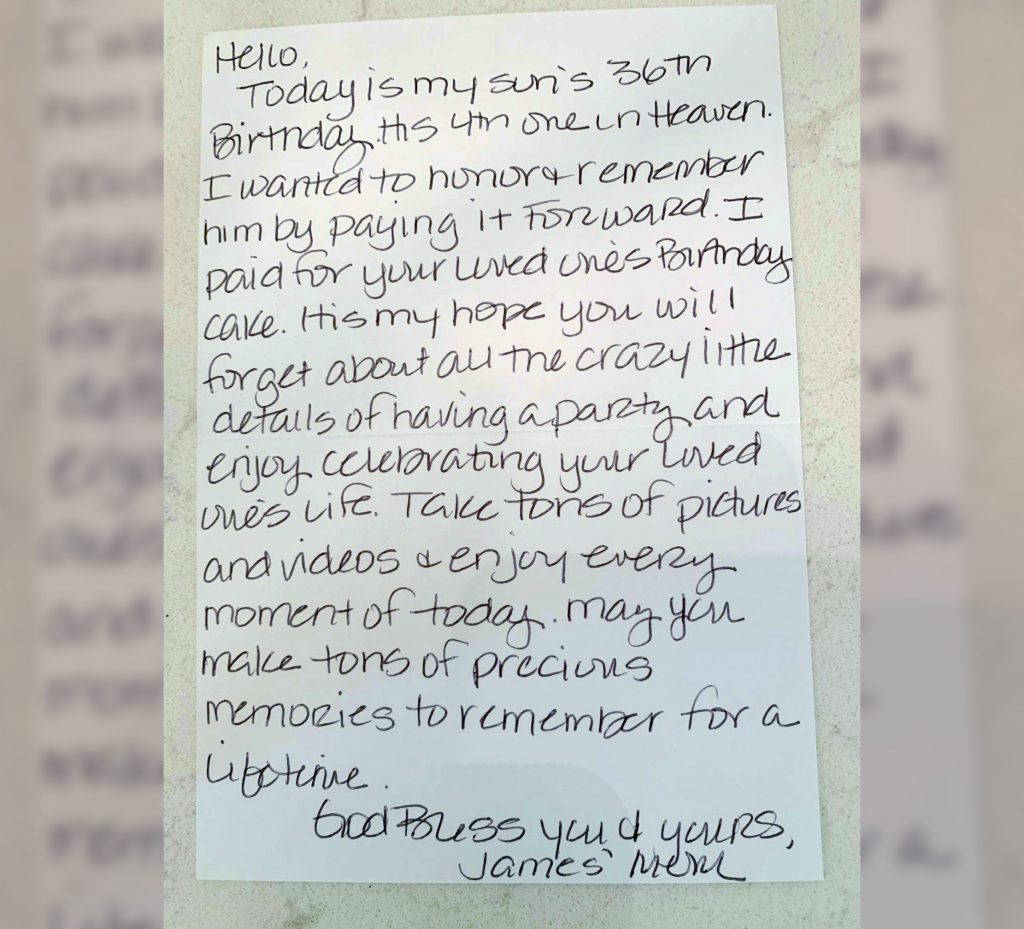 Hello,
Today is my son's 36th
Birthday. His 4th one in Heaven.
I wanted to honor & remember
him by paying it Forward. I
paid for your loved one's Birthday
cake. It is my hope you will
forget about all the crazy little
details of having a party and
enjoy celebrating your loved
one's life. Take tons of pictures
and videos & enjoy every
moment of today. May you
make tons of precious
memories to remember for a
Lifetime.
God Bless you & yours,
James' Mom